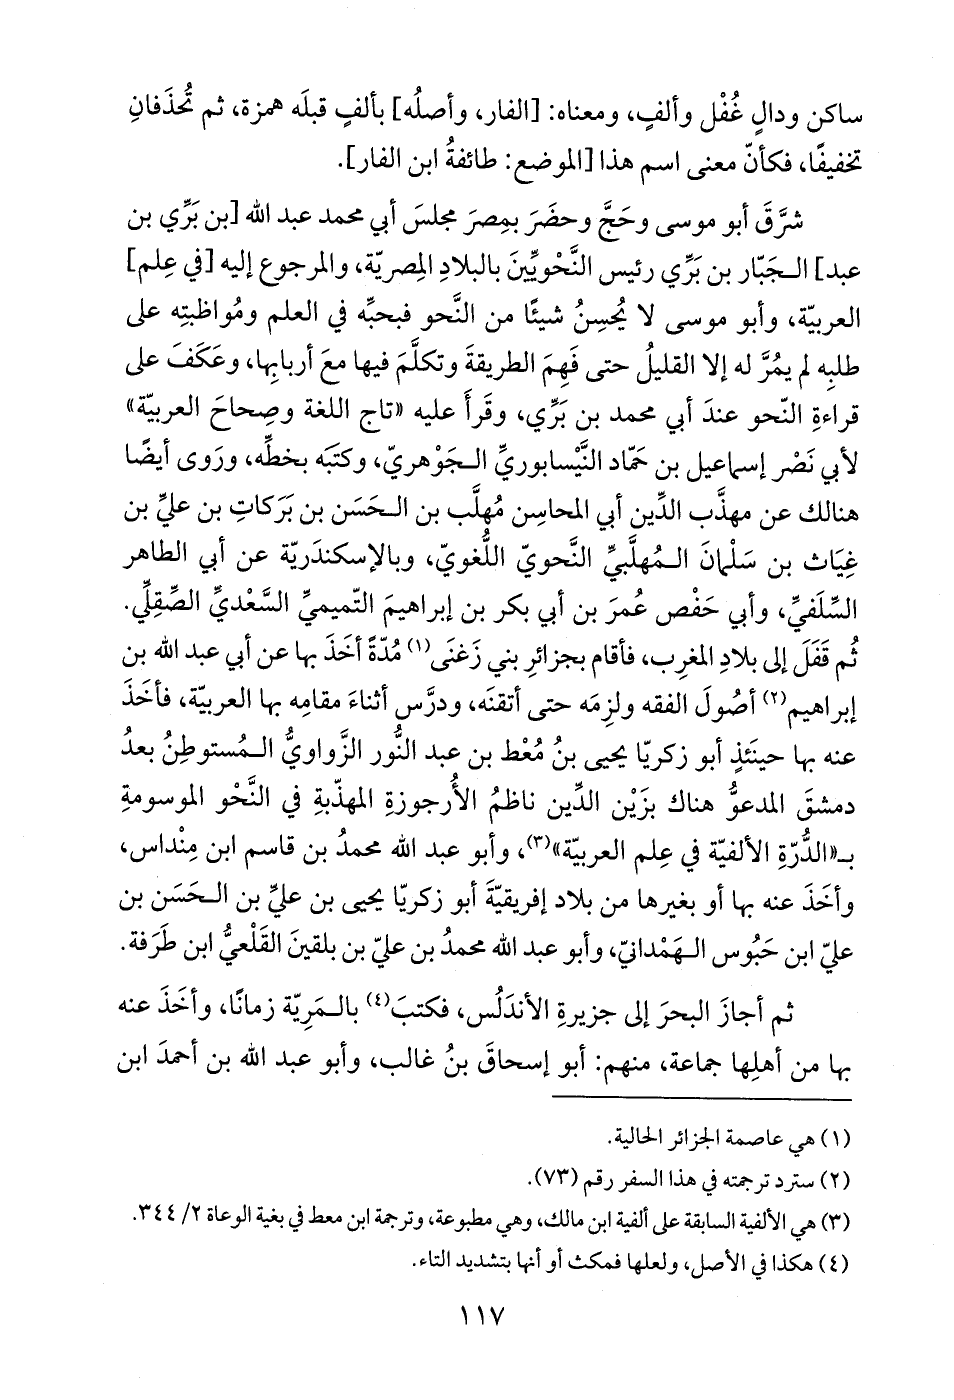 ساكن ودالٍ غُفْل وألفٍ، ومعناه: [الفار، وأصلُه] بألفٍ قبلَه همزة، ثم تُحذَفانِ
تخفيفًا، فكأنّ معنى اسم هذا [الموضع: طائفةُ ابن الفار].
شرَّقَ أبو موسى وحَجَّ وحضَرَ بمِصرَ مجلسَ أبي محمد عبد الله [بن بَرِّي بن
عبد] الـجَبّار بن بَرِّي رئيس النَّحويِّينَ بالبلادِ المِصريّة، والمرجوع إليه [في عِلم]
العربيّة، وأبو موسى لا يُحسِنُ شيئًا من النَّحو فبحبِّه في العلم ومُواظبتِه على
طلبِه لم يمُرَّ له إلا القليلُ حتى فَهِمَ الطريقةَ وتكلَّمَ فيها معَ أربابِها، وعَكَفَ على
قراءةِ النّحو عندَ أبي محمد بن بَرِّي، وقَرأَ عليه «تاج اللغة وصِحاحَ العربيّة»
لأبي نَصْر إسماعيل بن حَمّاد النَّيسابوريِّ الـجَوْهريّ، وكتَبَه بخطِّه، ورَوى أيضًا
هنالك عن مهذَّب الدِّين أبي المحاسِن مُهلَّب بن الـحَسَن بن بَرَكاتِ بن عليِّ بن
غِيَاث بن سَلْمانَ الـمُهلَّبيِّ النَّحويّ اللُّغويّ، وبالإسكندَريّة عن أبي الطاهر
السِّلَفيِّ، وأبي حَفْص عُمرَ بن أبي بكر بن إبراهيمَ التّميميِّ السَّعْديِّ الصِّقِلِّي.
ثُم قَفَلَ إلى بلادِ المغرِب، فأقام بجزائرِ بني زَغنَى(١) مُدّةً أخَذَ بها عن أبي عبد الله بن
إبراهيم(٢) أصُولَ الفقه ولزِمَه حتى أتقنَه، ودرَّس أثناءَ مقامِه بها العربيّة، فأخَذَ
عنه بها حينَئذٍ أبو زكريّا يحيى بنُ مُعْط بن عبد النُّور الزَّواويُّ الـمُستوطِنُ بعدُ
دمشقَ المدعوُّ هناك بزَيْن الدِّين ناظمُ الأُرجوزةِ المهذّبةِ في النَّحْو الموسومةِ
بـ«الدُّرّةِ الألفيّة في عِلم العربيّة»(٣)، وأبو عبد الله محمدُ بن قاسم ابن مِنْداس،
وأخَذَ عنه بها أو بغيرها من بلاد إفريقيّةَ أبو زكريّا يحيى بن عليِّ بن الـحَسَن بن
عليّ ابن حَبُوس الـهَمْدانيّ، وأبو عبد الله محمدُ بن عليّ بن بلقينَ القَلْعيُّ ابن طَرَفة.
ثم أجازَ البحرَ إلى جزيرةِ الأندَلُس، فكتبَ(٤) بالـمَرِيّة زمانًا، وأخَذَ عنه
بها من أهلِها جماعة، منهم: أبو إسحاقَ بنُ غالب، وأبو عبد الله بن أحمدَ ابن
(١) هي عاصمة الجزائر الحالية.
(٢) سترد ترجمته في هذا السفر رقم (٧٣).
(٣) هي الألفية السابقة على ألفية ابن مالك، وهي مطبوعة، وترجمة ابن معط في بغية الوعاة ٢/ ٣٤٤.
(٤) هكذا في الأصل، ولعلها فمكث أو أنها بتشديد التاء.
١١٧